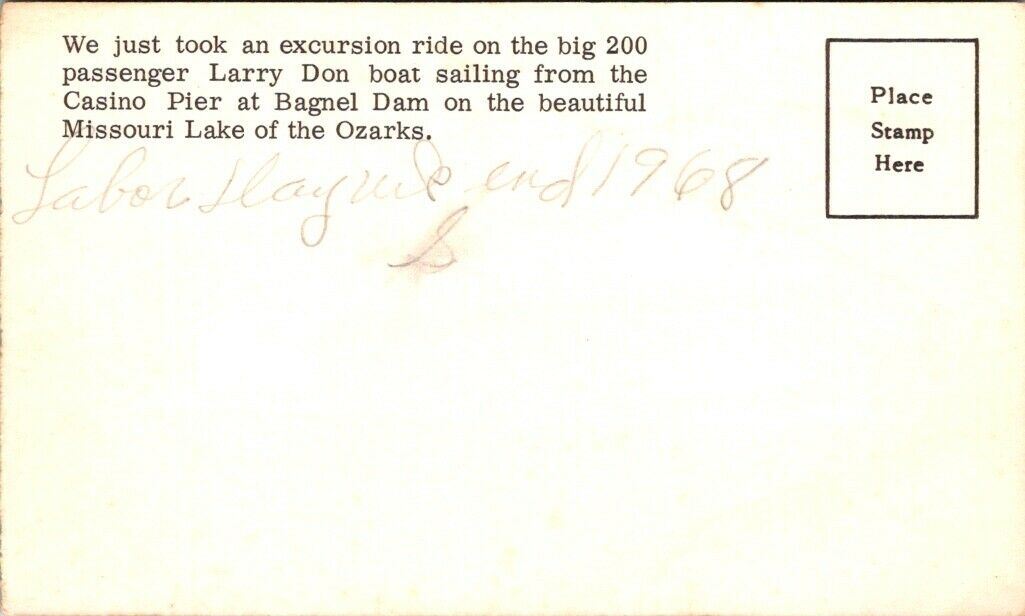 We just took an excursion ride on the big 200
passenger Larry Don boat sailing from the
Casino Pier at Bagnel Dam on the beautiful
Missouri Lake of the Ozarks.
Place
Stamp
Here
Labor Day end 1968